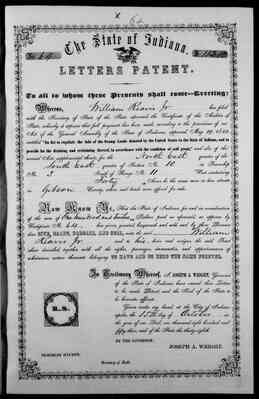 The State of Indiana.
LETTERS PATENT.
To all to whom these Presents shall come—Greeting:
Whereas, William Reavis Jr has filed
with the Secretary of State of the State aforesaid the Certificate of the Auditor of
State, whereby it appears that full payment has been made according to the provisions of an
Act of the General Assembly of the State of Indiana, approved May 29, 1852,
entitled "An Act to regulate the sale of the Swamp Lands donated by the United States to the State of Indiana, and to
provide for the draining and reclaiming thereof, in accordance with the condition of said grant," and also of the
several Acts supplemental thereto for the North East quarter of the
South East quarter of Section No. 10 in Township
No. 3 South of Range No. 11 West containing
Forty Acres
Gibson County, when said tracts were offered for sale.
Now Know Ye, That the State of Indiana, for and in consideration of
the sum of Dollars paid as aforesaid, as appears by
Certificate No. has given, granted, bargained and sold, and by these Presents
does GIVE, GRANT, BARGAIN, AND SELL, unto the said William
Reavis Jr and to his heirs and assigns the said Tract
above described; together with all the rights, privileges, immunities, and appurtenances of
whatsoever nature thereunto belonging TO HAVE AND TO HOLD THE SAME FOREVER.
In Testimony Whereof, I, JOSEPH A. WRIGHT, Governor
of the State of Indiana, have caused these Letters
to be made Patent, and the Seal of the State to
be hereunto affixed.
Given under my hand, at the City of Indianapolis,
the 15th day of October in
the year of our Lord, one thousand eight hundred and
fifty three, and of the State the thirty eighth.
BY THE GOVERNOR.
L.S.
JOSEPH A. WRIGHT.
NEHEMIAH HAYDEN,
Secretary of State.